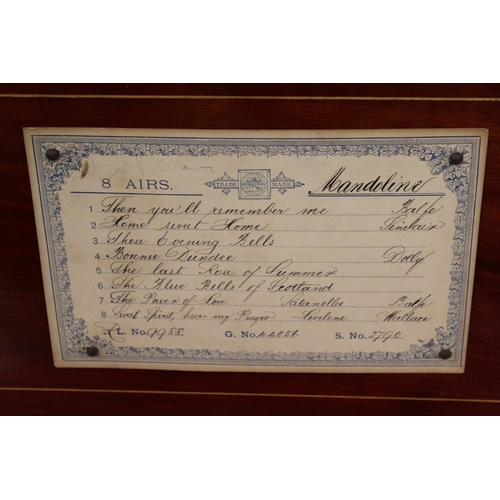 8 AIRS. TRADE MARK. Mandoline
1 Then you'll remember me Balfe
2 Home sweet Home Sinclair
3 Those Evening Bells
4 Bonnie Dundee Dolby
5 The last Rose of Summer
6 The Blue Bells of Scotland
7 The Power of Love Satanella Balfe
8 Sweet Spirit, hear my Prayer Lurline Wallace
L. No. 9988 G. No. S. No. 2790